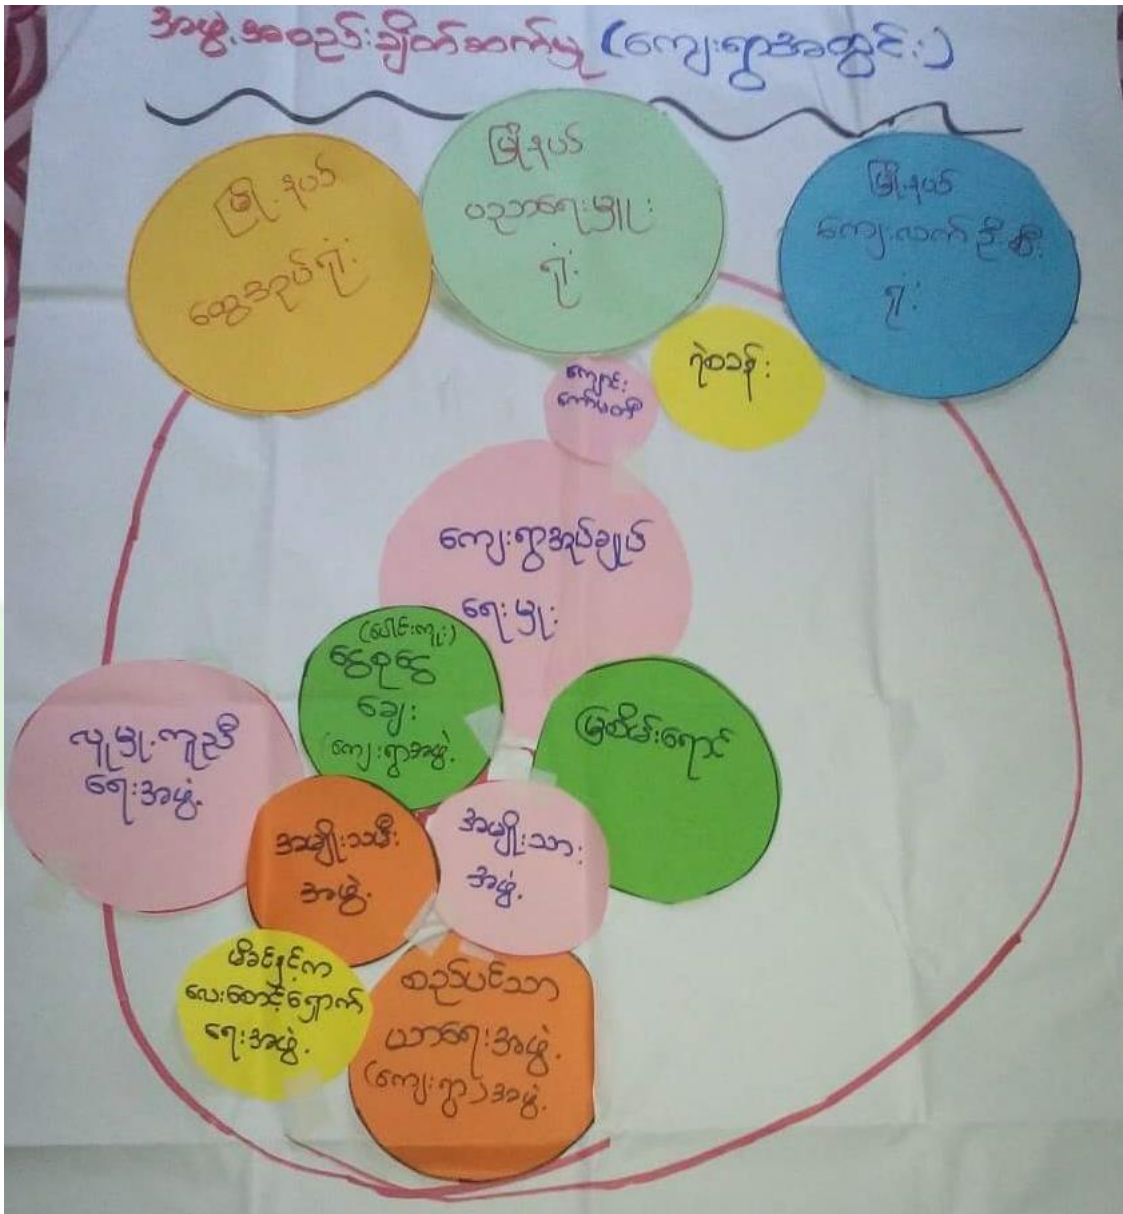 အဖွဲ့အစည်းချိတ်ဆက်မှု (ကျေးရွာအတွင်း)
မြို့နယ်
ထွေအုပ်ရုံး
မြို့နယ်
ပညာရေးမှူး
ရုံး
မြို့နယ်
ကျေးလက်ဦးစီး
ရုံး
ရဲစခန်း
ကျောင်း
ကော်မတီ
ကျေးရွာအုပ်ချုပ်
ရေးမှုး
(ပေါင်းကူး)
ငွေစုငွေ
ချေး
(ကျေးရွာအဖွဲ့
မြစိမ်းရောင်
လူမှုကူညီ
ရေးအဖွဲ့
အမျိုးသမီး
အဖွဲ့
အမျိုးသား
အဖွဲ့
မိခင်နှင့်က
လေးစောင့်ရှောက်
ရေးအဖွဲ့
စည်ပင်သာ
ယာရေးအဖွဲ့
(ကျေးရွာ)အဖွဲ့